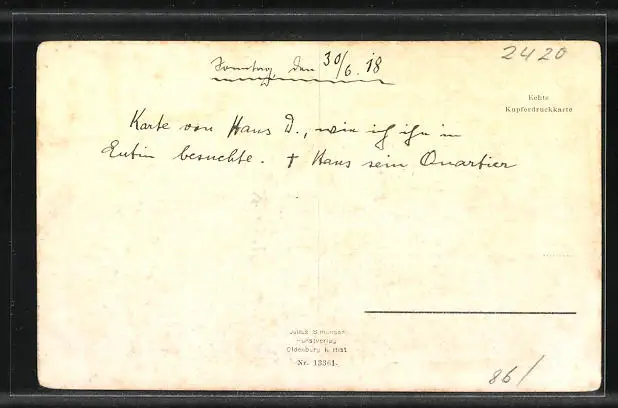 2420
Sonntag, den 30/6. 18
Echte
Kupferdruckkarte
Karte von Hans D., wie ich ihn in
Eutin besuchte. † Hans sein Quartier
Julius Simonsen
Kunstverlag
Oldenburg i. Hlst
Nr. 13361.
86/